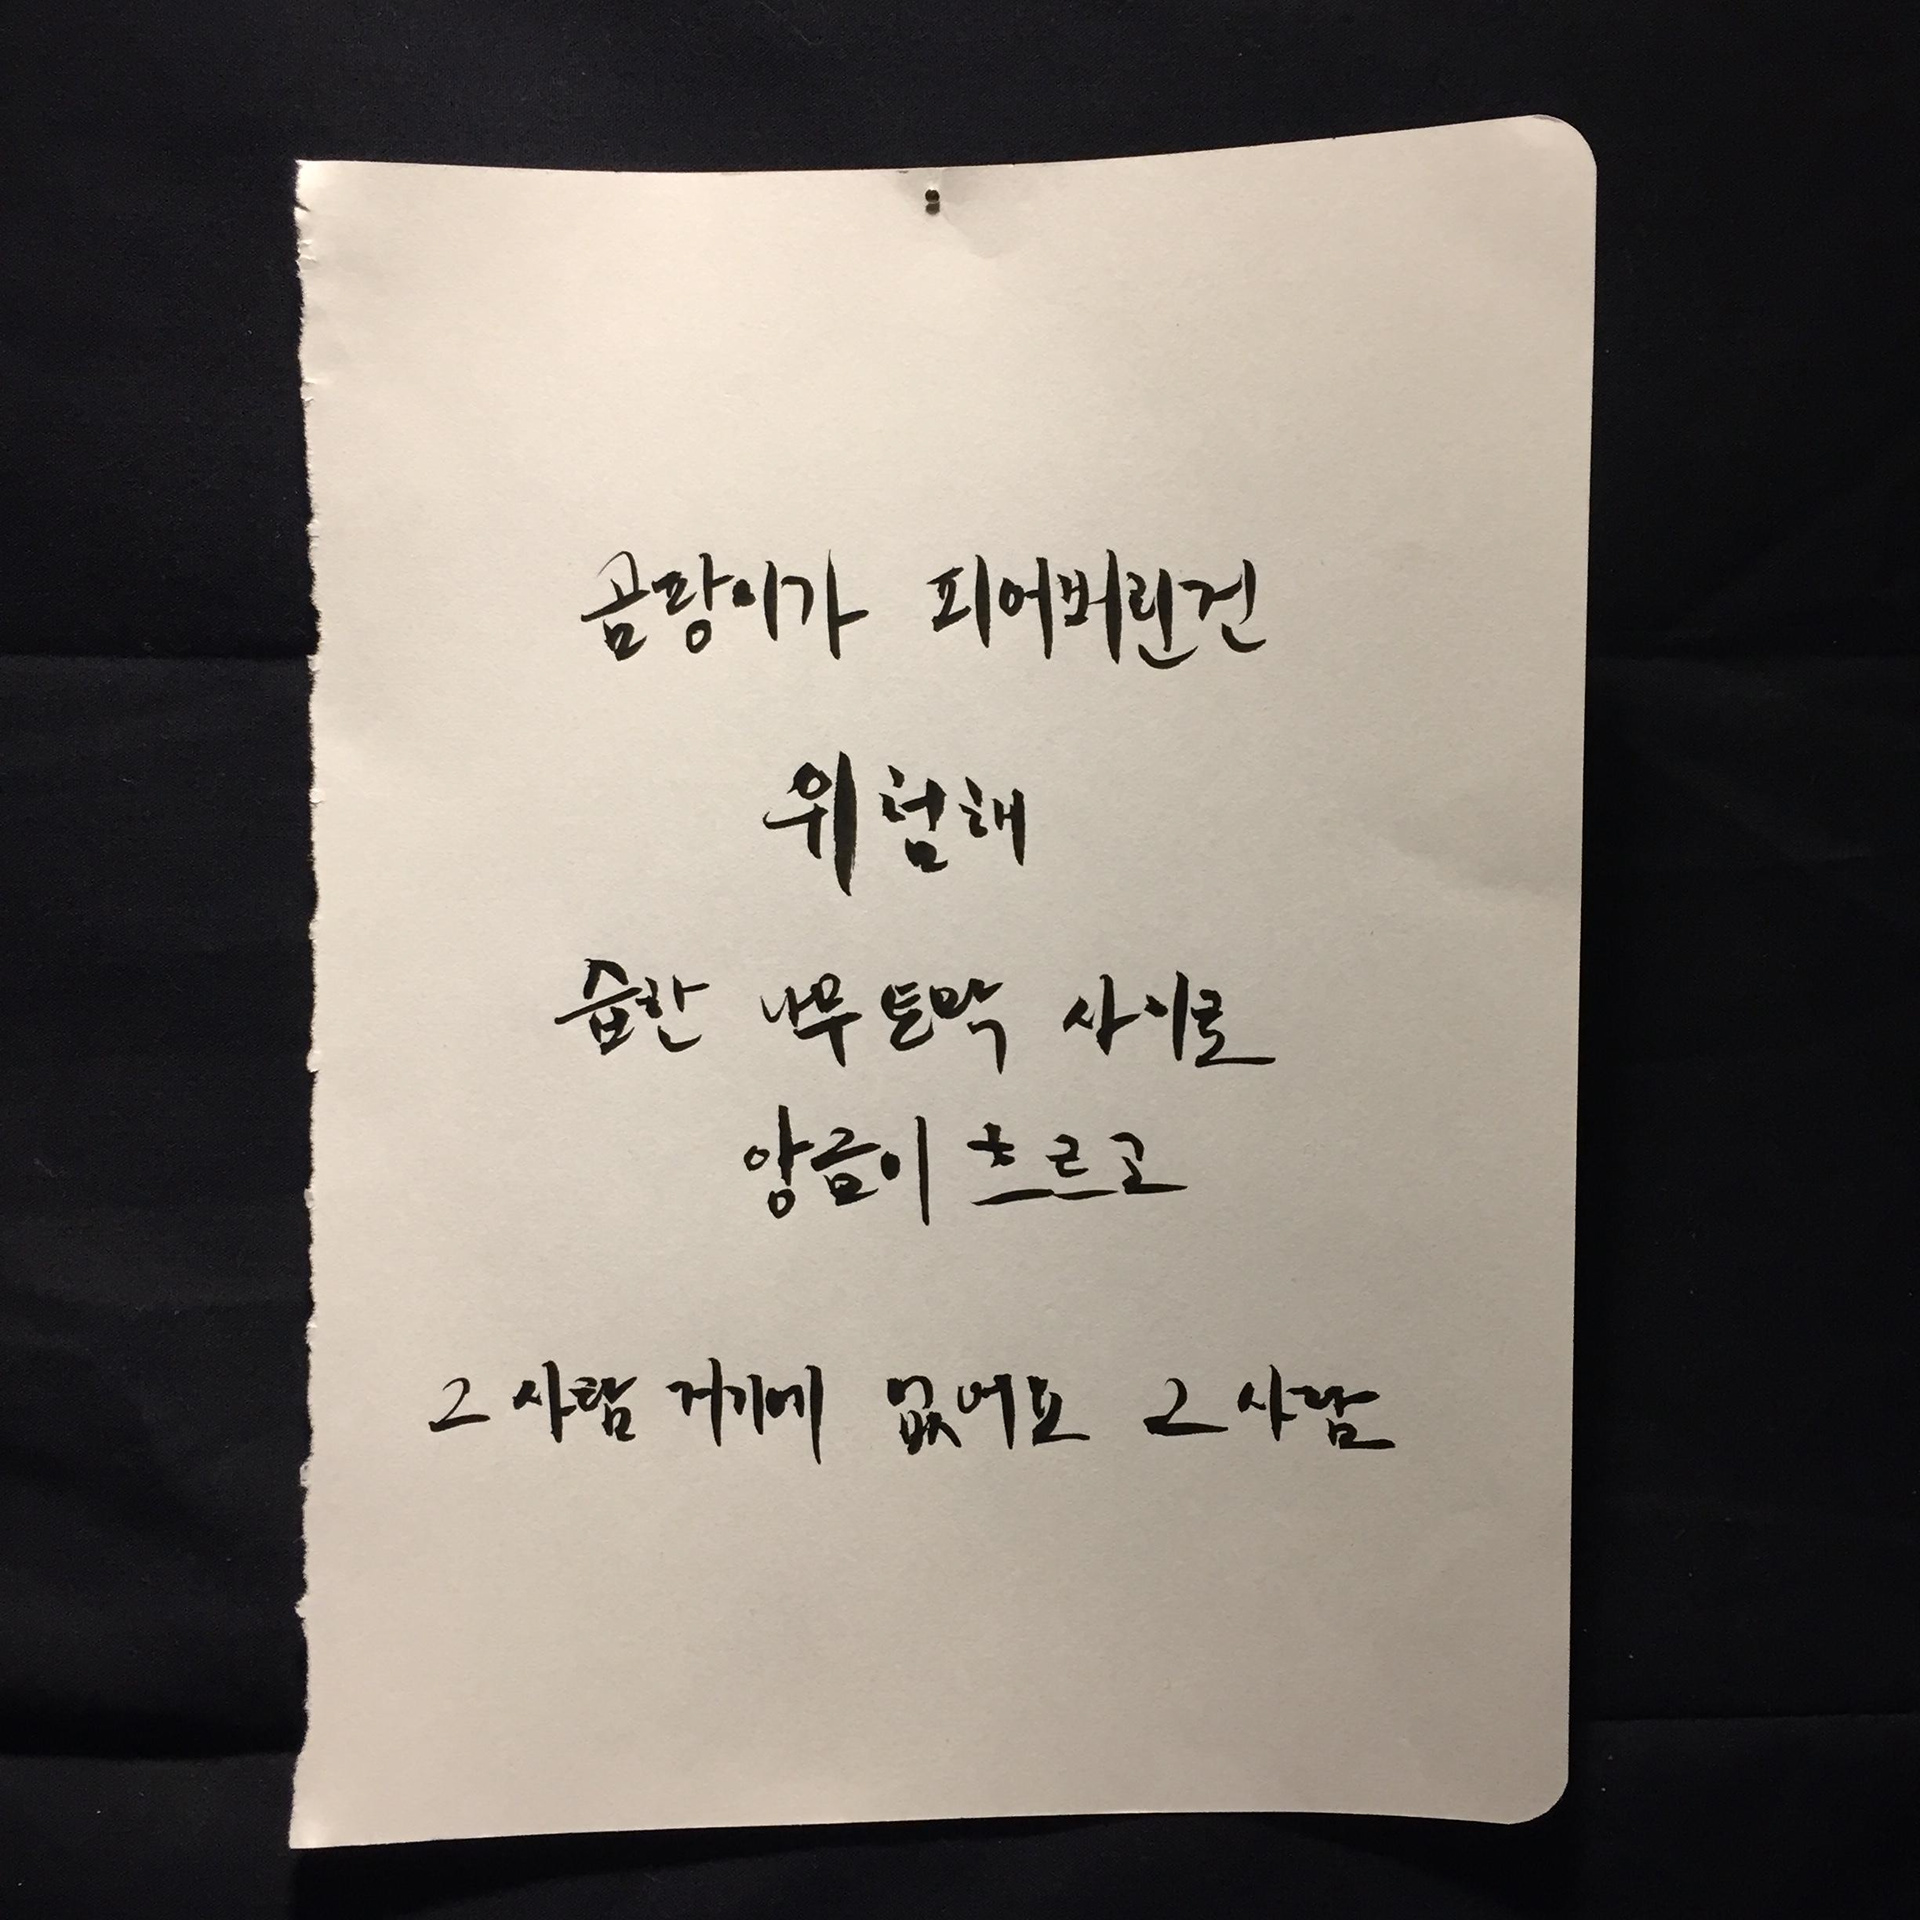 곰팡이가 피어버린건
위험해
습한 나무토막 사이로
앙금이 흐르고
그 사람 거기에 없어요 그 사람